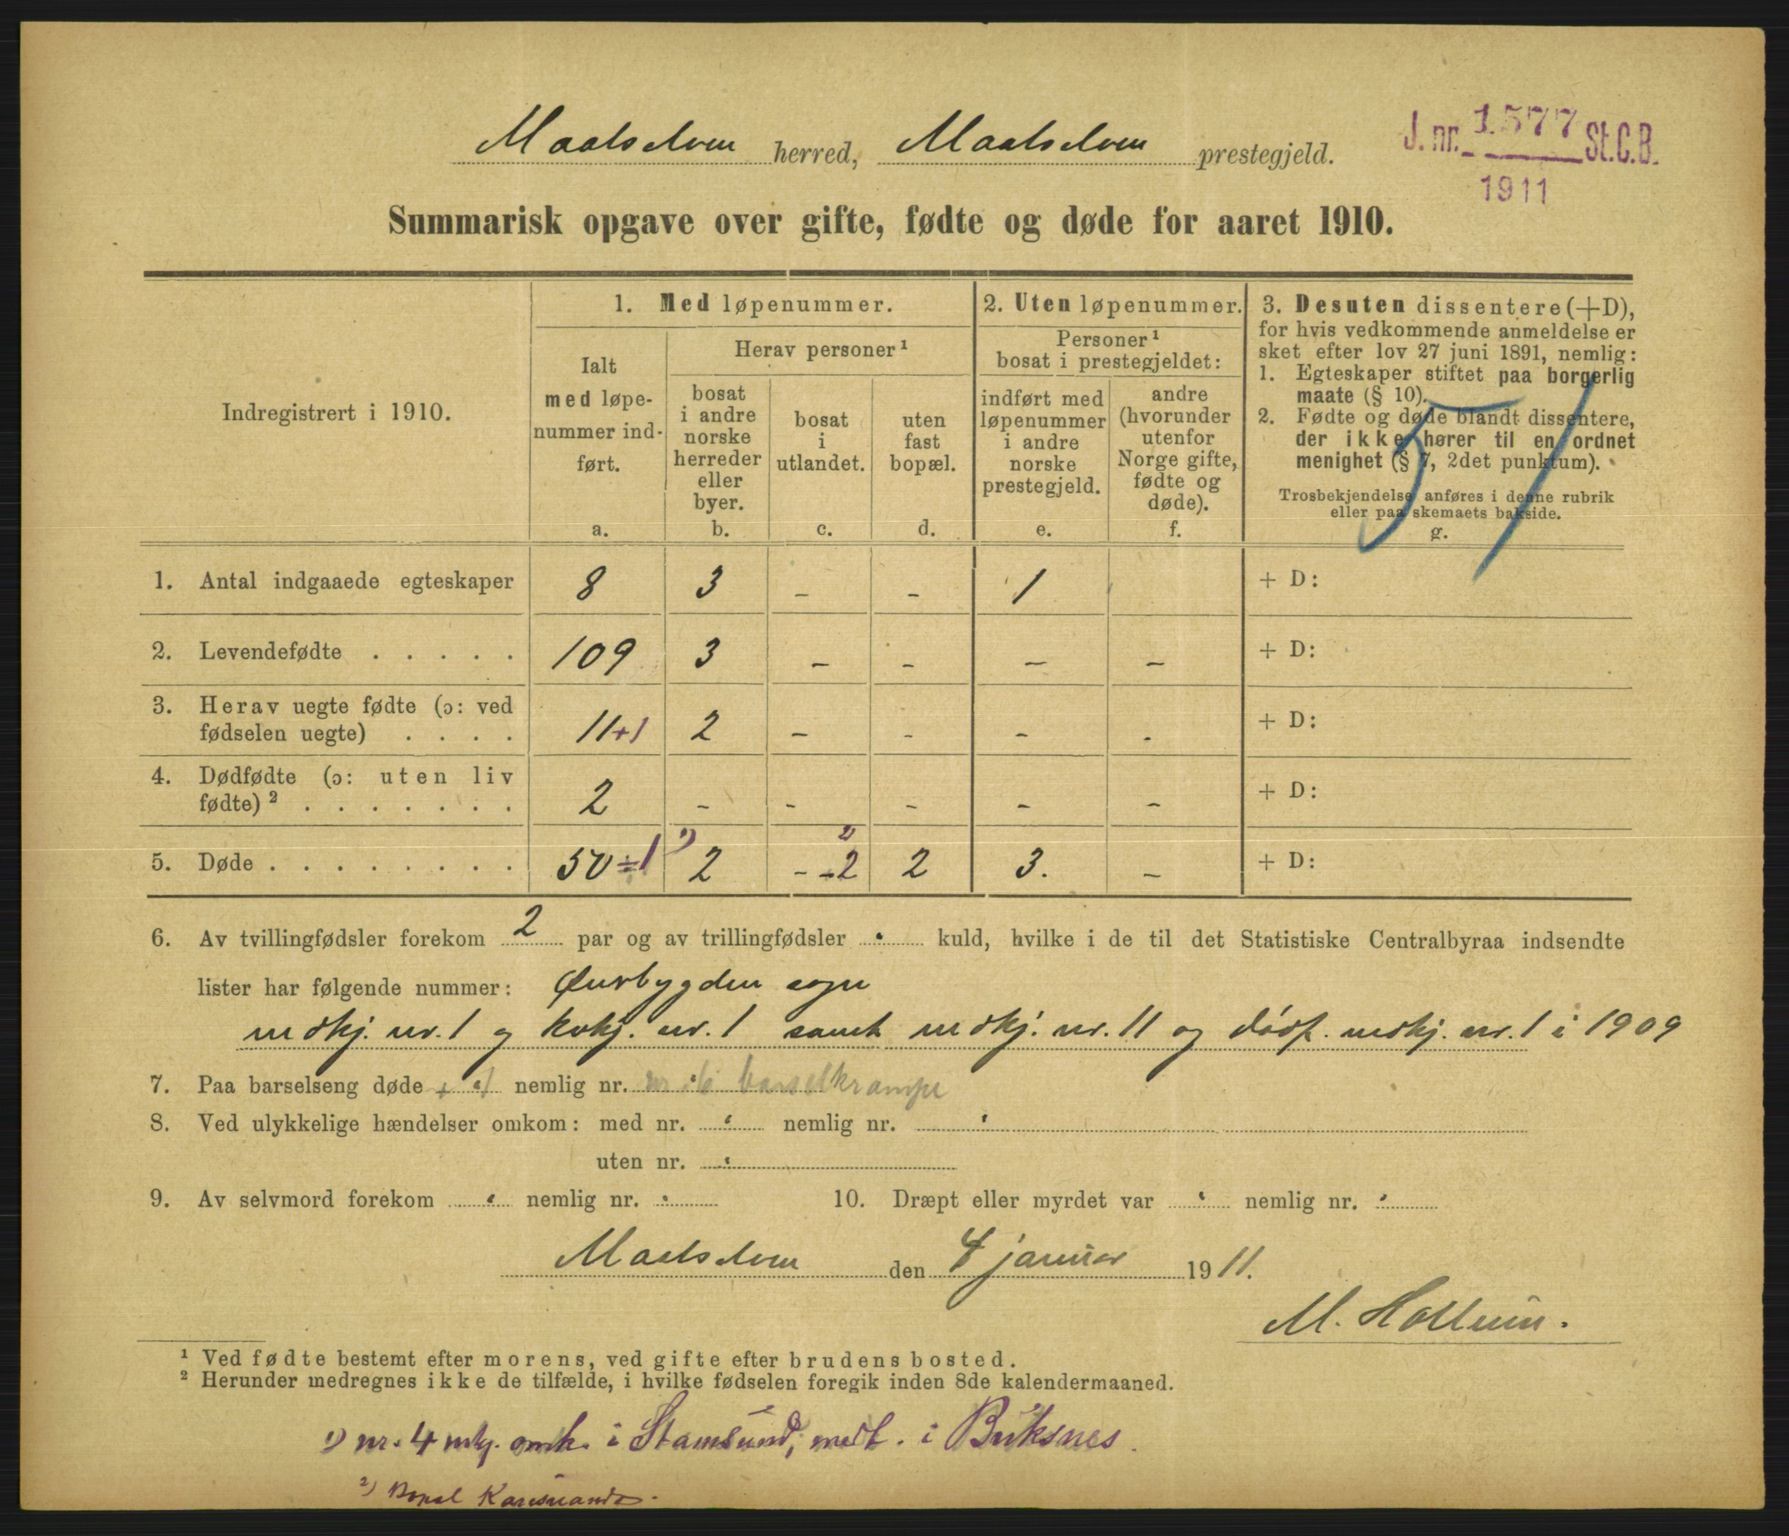 Maalselven herred, Maalselven prestegjeld.
J. nr. 1577 St.C.B.
1911
Summarisk opgave over gifte, fødte og døde for aaret 1910.
Indregistrert i 1910.
1. Med løpenummer.
Ialt med løpe-nummer ind-ført.
a.
Herav personer¹
bosat i andre norske herreder eller byer.
b.
bosat i utlandet.
c.
uten fast bopæl.
d.
2. Uten løpenummer.
Personer¹ bosat i prestegjeldet:
indført med løpenummer i andre norske prestegjeld.
e.
andre (hvorunder utenfor Norge gifte, fødte og døde).
f.
3. Desuten dissentere (+D),
for hvis vedkommende anmeldelse er
sket efter lov 27 juni 1891, nemlig:
1. Egteskaper stiftet paa borgerlig
maate (§ 10).
2. Fødte og døde blandt dissentere,
der ikke hører til en ordnet
menighet (§ 7, 2det punktum).
Trosbekjendelse anføres i denne rubrik
eller paa skemaets bakside.
g.
1. Antal indgaaede egteskaper 8 3 - - 1 + D:
2. Levendefødte . . . . . 109 3 - - - - + D:
3. Herav uegte fødte (ɔ: ved
fødselen uegte) . . . . 11+1 2 - - - - + D:
4. Dødfødte (ɔ: uten liv
fødte)² . . . . . . . 2 - - - - - + D:
5. Døde . . . . . . . . 50÷1 ¹) 2 - -2 ²) 2 3. - + D:
6. Av tvillingfødsler forekom 2 par og av trillingfødsler kuld, hvilke i de til det Statistiske Centralbyraa indsendte
lister har følgende nummer: Øverbygden sogn
mdkj. nr. 1 og kvkj. nr. 1 samt mdkj. nr. 11 og dødf. mdkj. nr. 1 i 1909
7. Paa barselseng døde + 1 nemlig nr. barselkrampe
8. Ved ulykkelige hændelser omkom: med nr. " nemlig nr. "
uten nr. "
9. Av selvmord forekom " nemlig nr. " 10. Dræpt eller myrdet var " nemlig nr. "
Maalselven den 4 januar 1911.
M. Hollum.
¹ Ved fødte bestemt efter morens, ved gifte efter brudens bosted.
² Herunder medregnes ikke de tilfælde, i hvilke fødselen foregik inden 8de kalendermaaned.
¹) nr. 4 mkj. omk. i Stamsund, medt. i Buksnes.
²) Bopæl Karesuando.